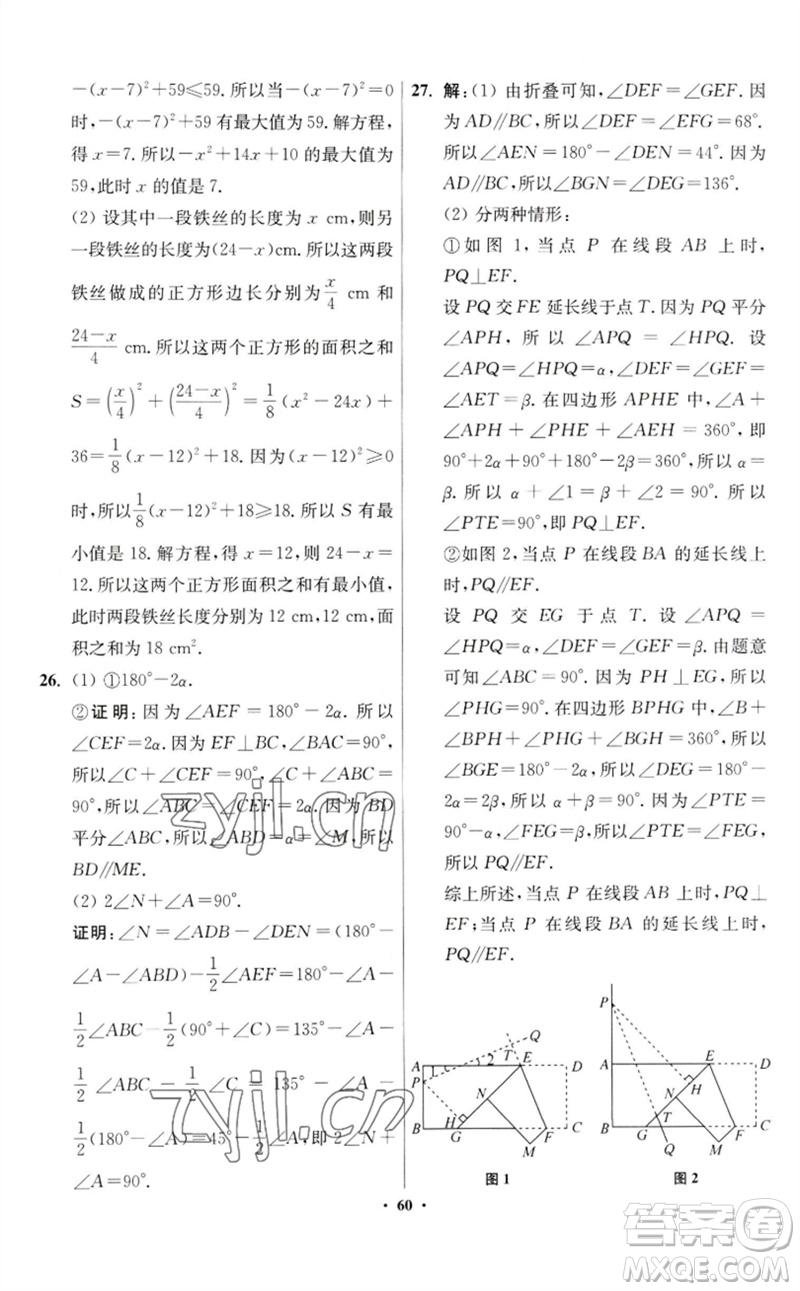 −(x−7)²+59≤59. 所以当−(x−7)²=0
时,−(x−7)²+59 有最大值为 59. 解方程,
得 x=7. 所以−x²+14x+10 的最大值为
59,此时 x 的值是 7.
(2) 设其中一段铁丝的长度为 x cm,则另
一段铁丝的长度为(24−x)cm. 所以这两段
铁丝做成的正方形边长分别为 x/4 cm 和
(24−x)/4 cm. 所以这两个正方形的面积之和
S=(x/4)²+((24−x)/4)²=1/8(x²−24x)+
36=1/8(x−12)²+18. 因为(x−12)²≥0
时,所以1/8(x−12)²+18≥18. 所以 S 有最
小值是 18. 解方程,得 x=12,则 24−x=
12. 所以这两个正方形面积之和有最小值,
此时两段铁丝长度分别为 12 cm,12 cm,面
积之和为 18 cm².
26. (1) ①180°−2α.
②证明:因为∠AEF=180°−2α. 所以
∠CEF=2α. 因为 EF⊥BC,∠BAC=90°,
所以∠C+∠CEF=90°,∠C+∠ABC=
90°,所以∠ABC=∠CEF=2α. 因为 BD
平分∠ABC,所以∠ABD=α=∠M,所以
BD∥ME.
(2) 2∠N+∠A=90°.
证明:∠N=∠ADB−∠DEN=(180°−
∠A−∠ABD)−1/2∠AEF=180°−∠A−
1/2∠ABC−1/2(90°+∠C)=135°−∠A−
1/2∠ABC−1/2∠C=135°−∠A−
1/2(180°−∠A)=45°−1/2∠A,即 2∠N+
∠A=90°.
27. 解:(1) 由折叠可知,∠DEF=∠GEF. 因
为 AD∥BC,所以∠DEF=∠EFG=68°.
所以∠AEN=180°−∠DEN=44°. 因为
AD∥BC,所以∠BGN=∠DEG=136°.
(2) 分两种情形:
①如图 1,当点 P 在线段 AB 上时,
PQ⊥EF.
设 PQ 交 FE 延长线于点 T. 因为 PQ 平分
∠APH,所以∠APQ=∠HPQ. 设
∠APQ=∠HPQ=α,∠DEF=∠GEF=
∠AET=β. 在四边形 APHE 中,∠A+
∠APH+∠PHE+∠AEH=360°,即
90°+2α+90°+180°−2β=360°,所以 α=
β. 所以 α+∠1=β+∠2=90°. 所以
∠PTE=90°,即 PQ⊥EF.
②如图 2,当点 P 在线段 BA 的延长线上
时,PQ∥EF.
设 PQ 交 EG 于点 T. 设∠APQ=
∠HPQ=α,∠DEF=∠GEF=β. 由题意
可知∠ABC=90°. 因为 PH⊥EG,所以
∠PHG=90°. 在四边形 BPHG 中,∠B+
∠BPH+∠PHG+∠BGH=360°,所以
∠BGE=180°−2α,所以∠DEG=180°−
2α=2β,所以 α+β=90°. 因为∠PTE=
90°−α,∠FEG=β,所以∠PTE=∠FEG,
所以 PQ∥EF.
综上所述,当点 P 在线段 AB 上时,PQ⊥
EF;当点 P 在线段 BA 的延长线上时,
PQ∥EF.
A 1 2 T E D Q
P N
B H G F C
M
图 1
P
A E D
N H
B G T F C
Q M
图 2
• 60 •
zyjl.cn
zyjl.cn
答案卷
MXQE.COM